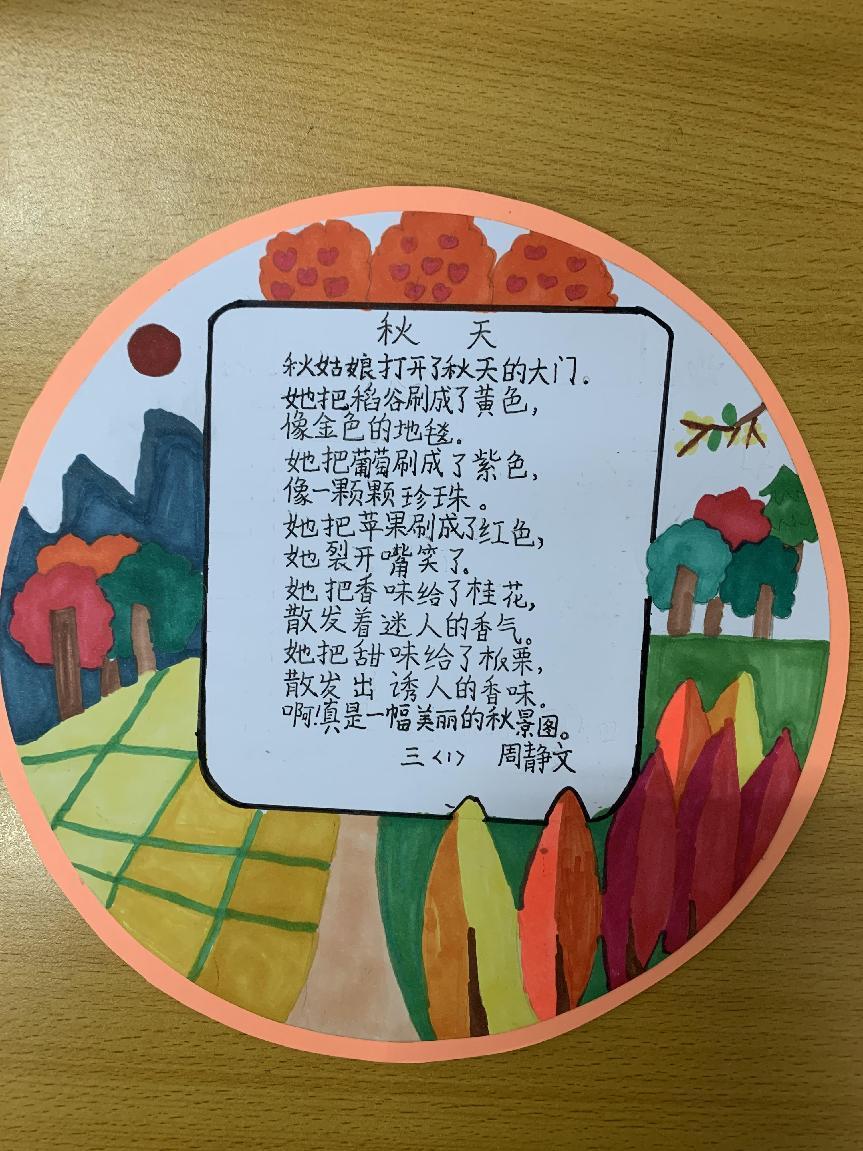 秋 天
秋姑娘打开了秋天的大门。
她把稻谷刷成了黄色，
像金色的地毯。
她把葡萄刷成了紫色，
像一颗颗珍珠。
她把苹果刷成了红色，
她裂开嘴笑了。
她把香味给了桂花，
散发着迷人的香气。
她把甜味给了板栗，
散发出诱人的香味。
啊！真是一幅美丽的秋景图。
三〈1〉 周静文